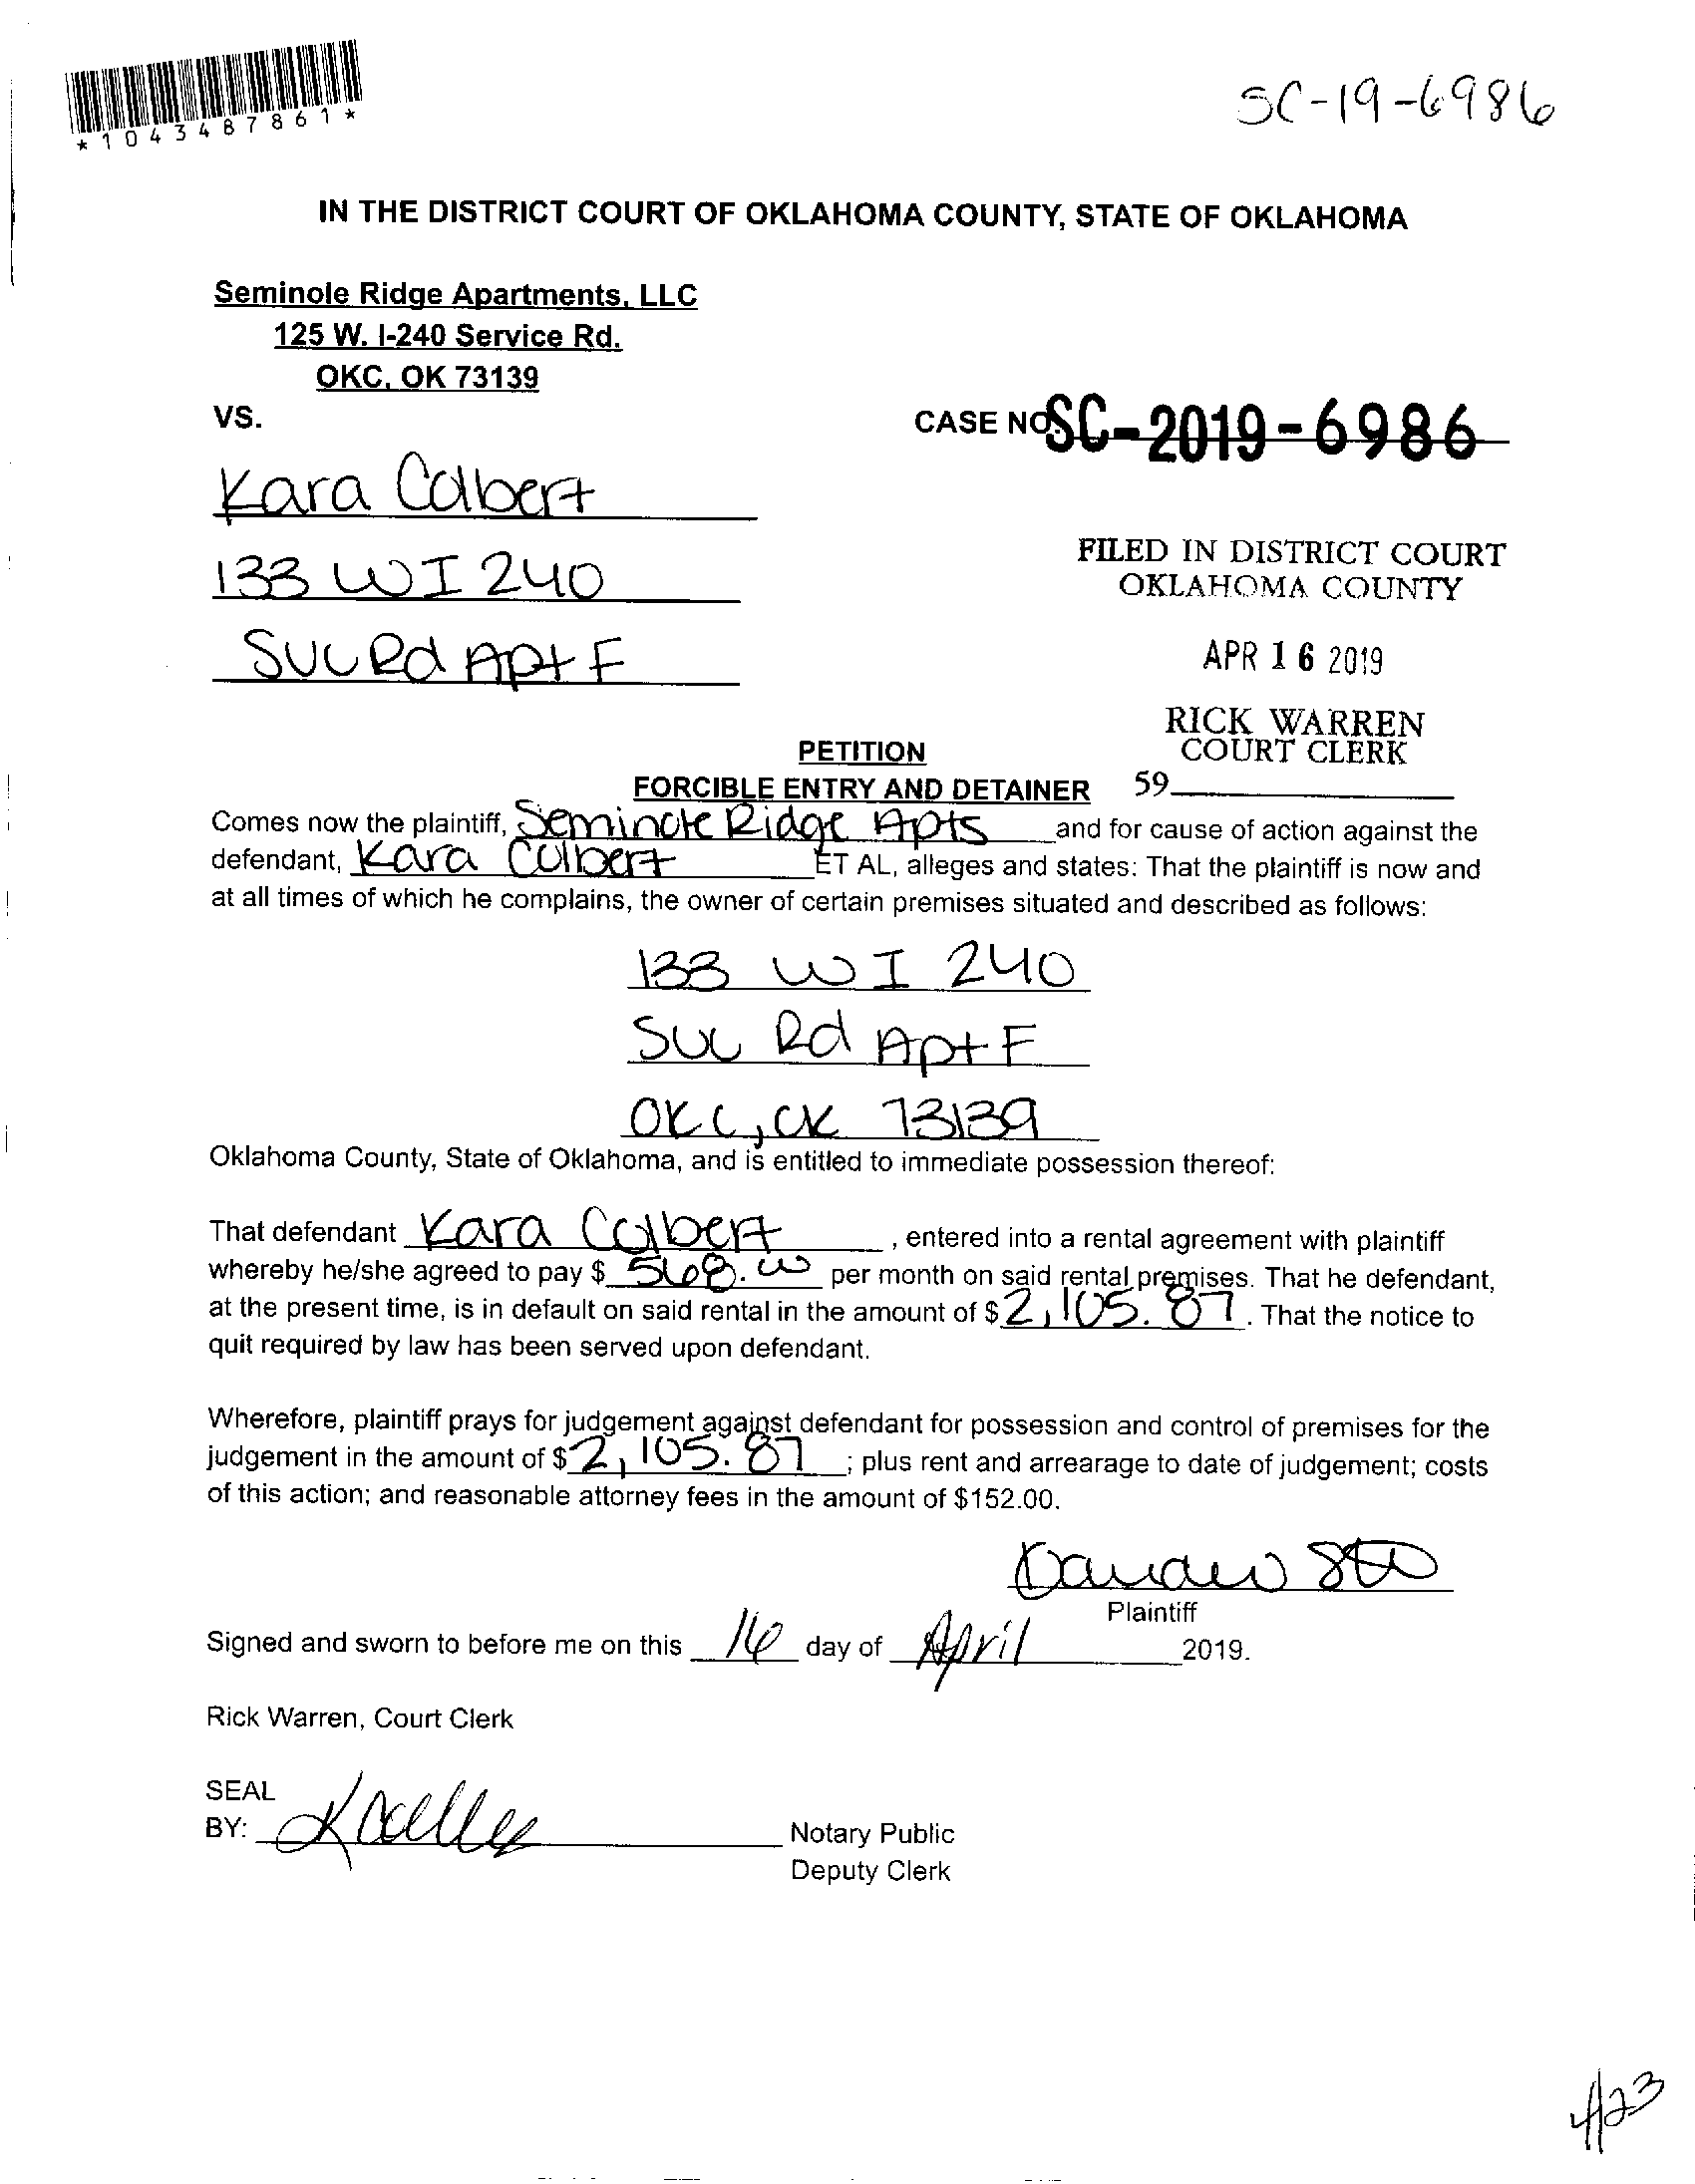 *1043487861*
SC-19-6986
IN THE DISTRICT COURT OF OKLAHOMA COUNTY, STATE OF OKLAHOMA
Seminole Ridge Apartments, LLC
125 W. I-240 Service Rd.
OKC, OK 73139
VS.
CASE NO. SC-2019-6986
Kara Colbert
133 W I 240
Svc Rd Apt F
FILED IN DISTRICT COURT
OKLAHOMA COUNTY
APR 16 2019
RICK WARREN
COURT CLERK
59
PETITION
FORCIBLE ENTRY AND DETAINER
Comes now the plaintiff, Seminole Ridge Apts and for cause of action against the
defendant, Kara Colbert ET AL, alleges and states: That the plaintiff is now and
at all times of which he complains, the owner of certain premises situated and described as follows:
133 W I 240
Svc Rd Apt F
OKC, OK 73139
Oklahoma County, State of Oklahoma, and is entitled to immediate possession thereof:
That defendant Kara Colbert, entered into a rental agreement with plaintiff
whereby he/she agreed to pay $ 568.00 per month on said rental premises. That he defendant,
at the present time, is in default on said rental in the amount of $ 2,105.87. That the notice to
quit required by law has been served upon defendant.
Wherefore, plaintiff prays for judgement against defendant for possession and control of premises for the
judgement in the amount of $ 2,105.87; plus rent and arrearage to date of judgement; costs
of this action; and reasonable attorney fees in the amount of $152.00.
Plaintiff
Signed and sworn to before me on this 16 day of April 2019.
Rick Warren, Court Clerk
SEAL
BY:
Notary Public
Deputy Clerk
4/23